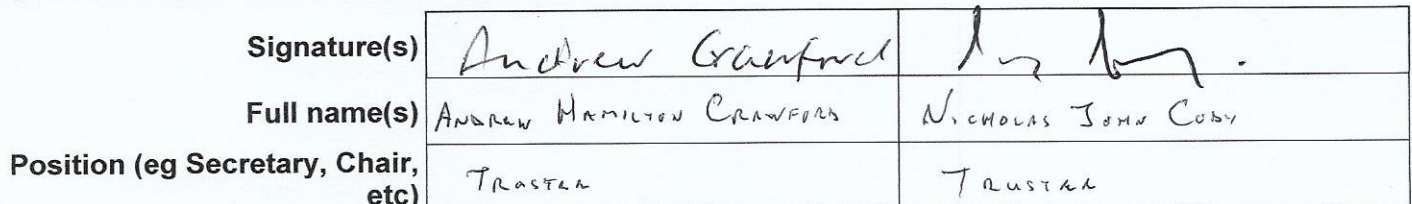 Signature(s) Andrew Crawford
Full name(s) ANDREW HAMILTON CRAWFORD NICHOLAS JOHN CODY
Position (eg Secretary, Chair, etc) TRUSTEE TRUSTEE